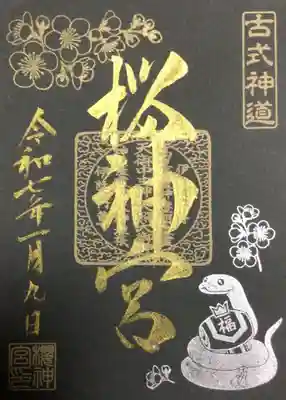 古式神道
桜神宮
令和七年一月九日
福
櫻神
宮印